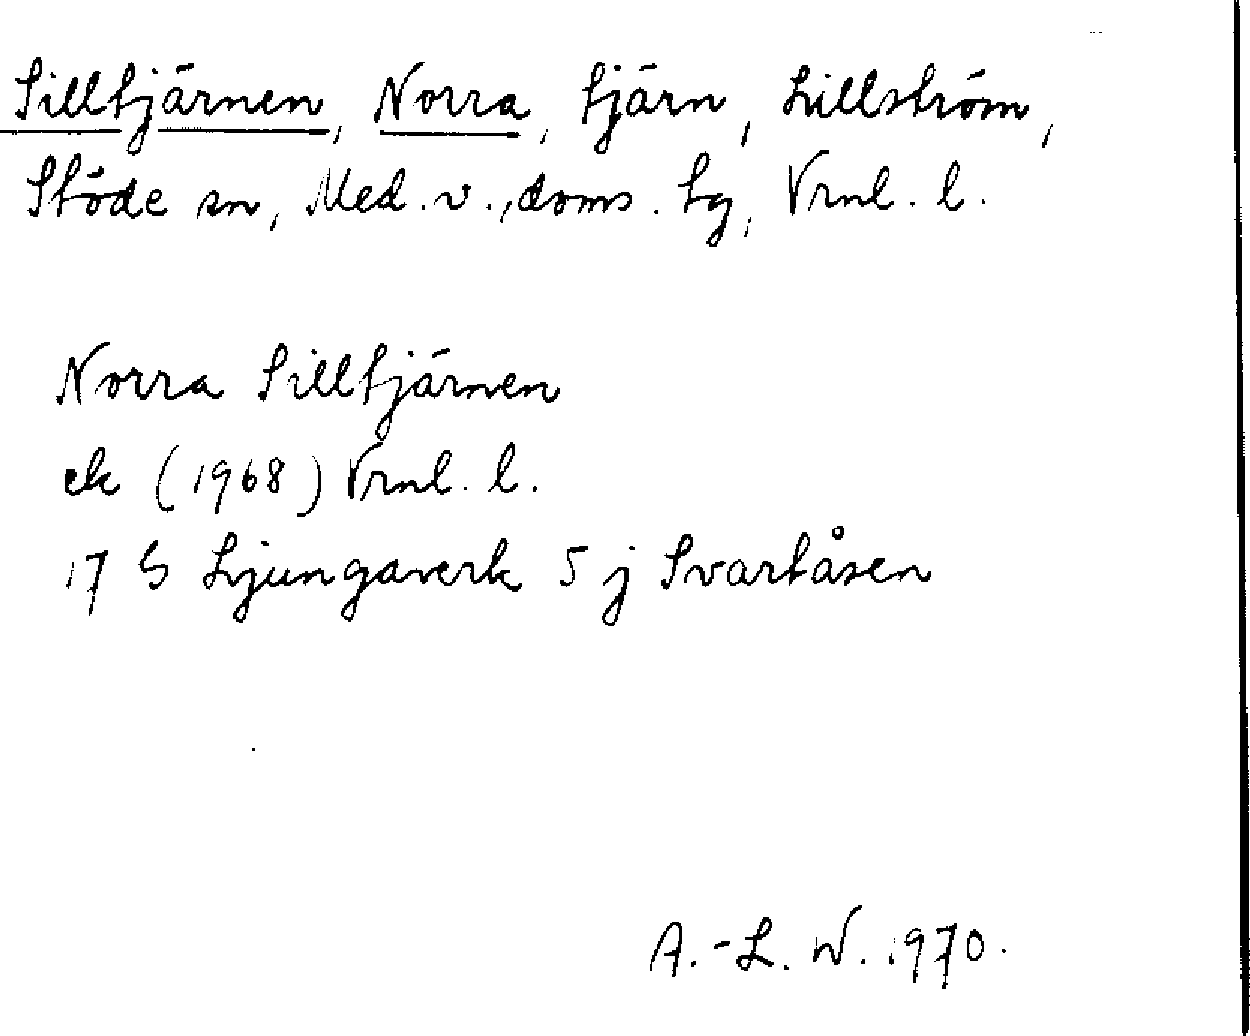 Silltjärnen, Norra, tjärn, Lillström,
Stöde sn, Med. v., doms. tg, Vrnl. l.
Norra Silltjärnen
ek (1968) Vrnl. l.
17 G Ljungaverk 5 j Svartåsen
A.-L. W. 1970.